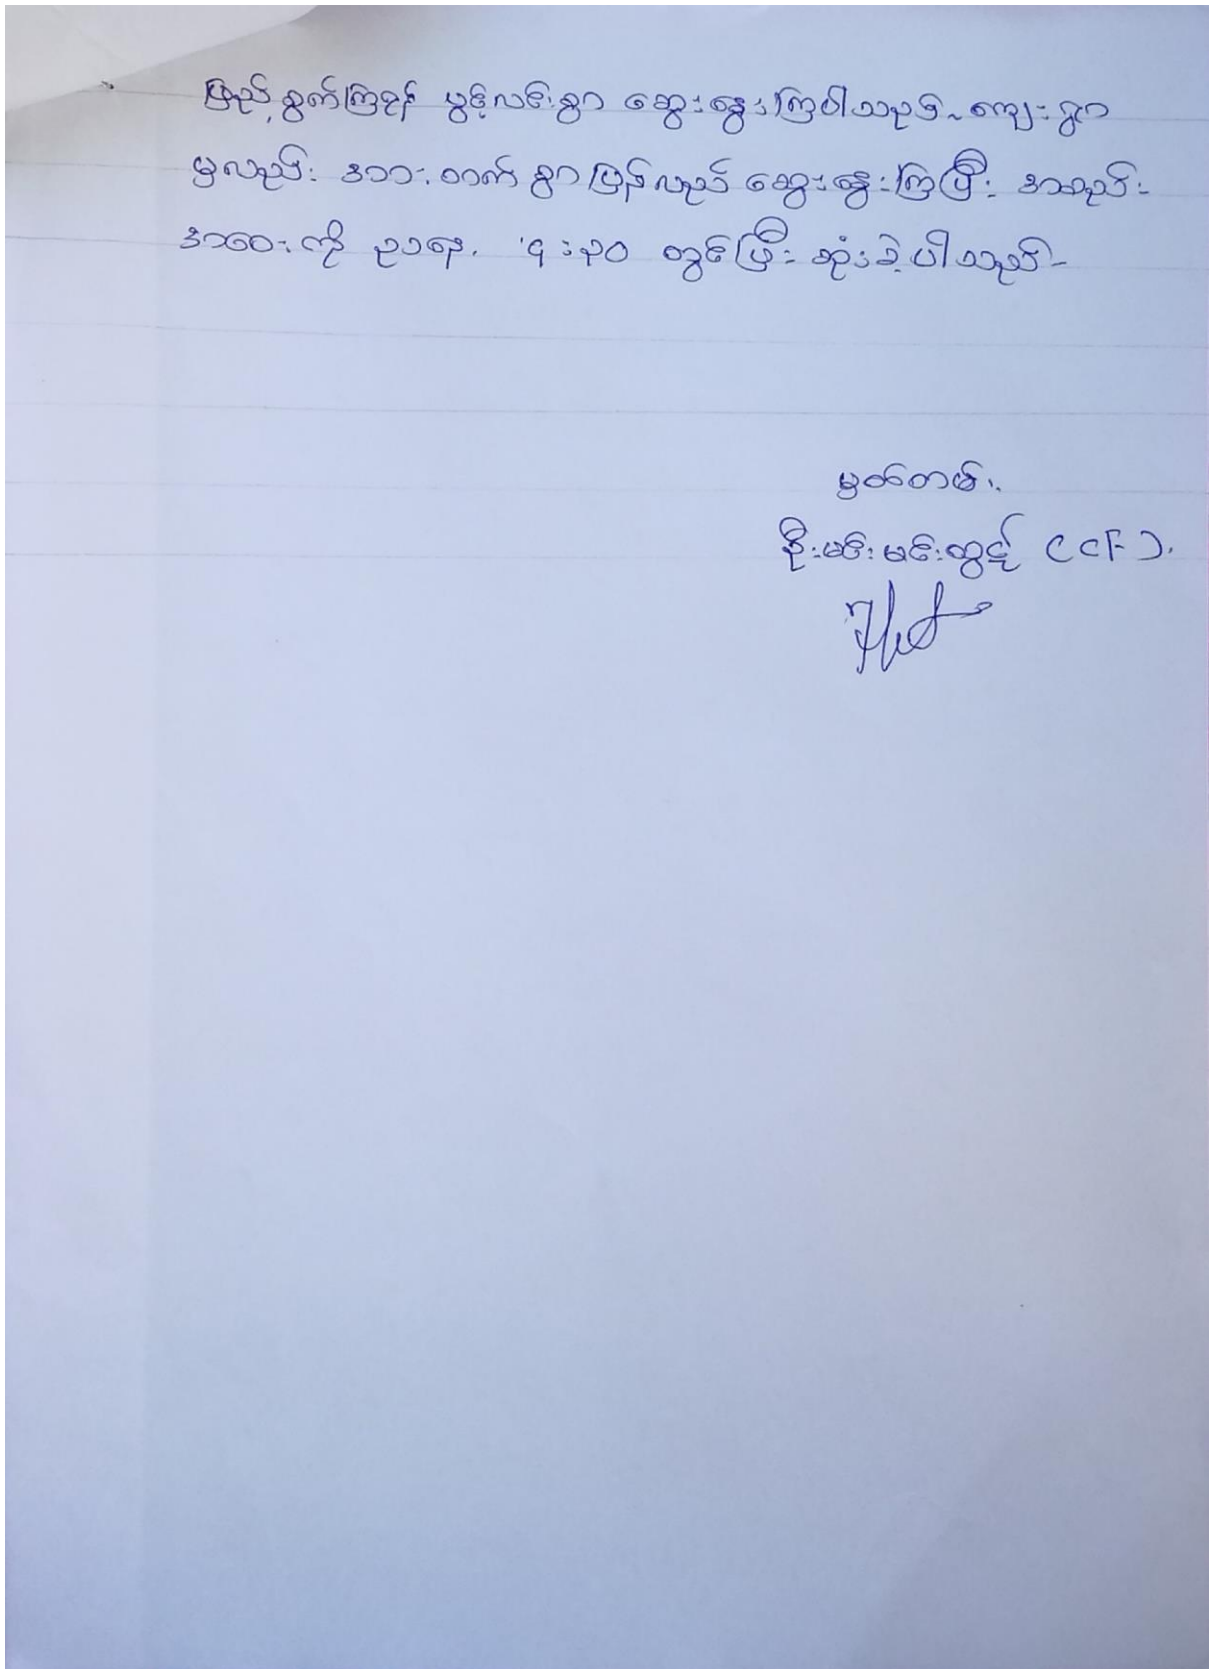 ဖြည့်စွက်ကြရန် ပွင့်လင်းစွာ ဆွေးနွေးကြပါသည်။ ကျေးရွာ
မှလည်း အားတက်စွာ ပြန်လည် ဆွေးနွေးကြပြီး အစည်း
အဝေးကို ညနေ ၄:၃၀ တွင်ပြီးဆုံးခဲ့ပါသည်-
မှတ်တမ်း
ဦးမင်းမင်းထွဋ် (CF).